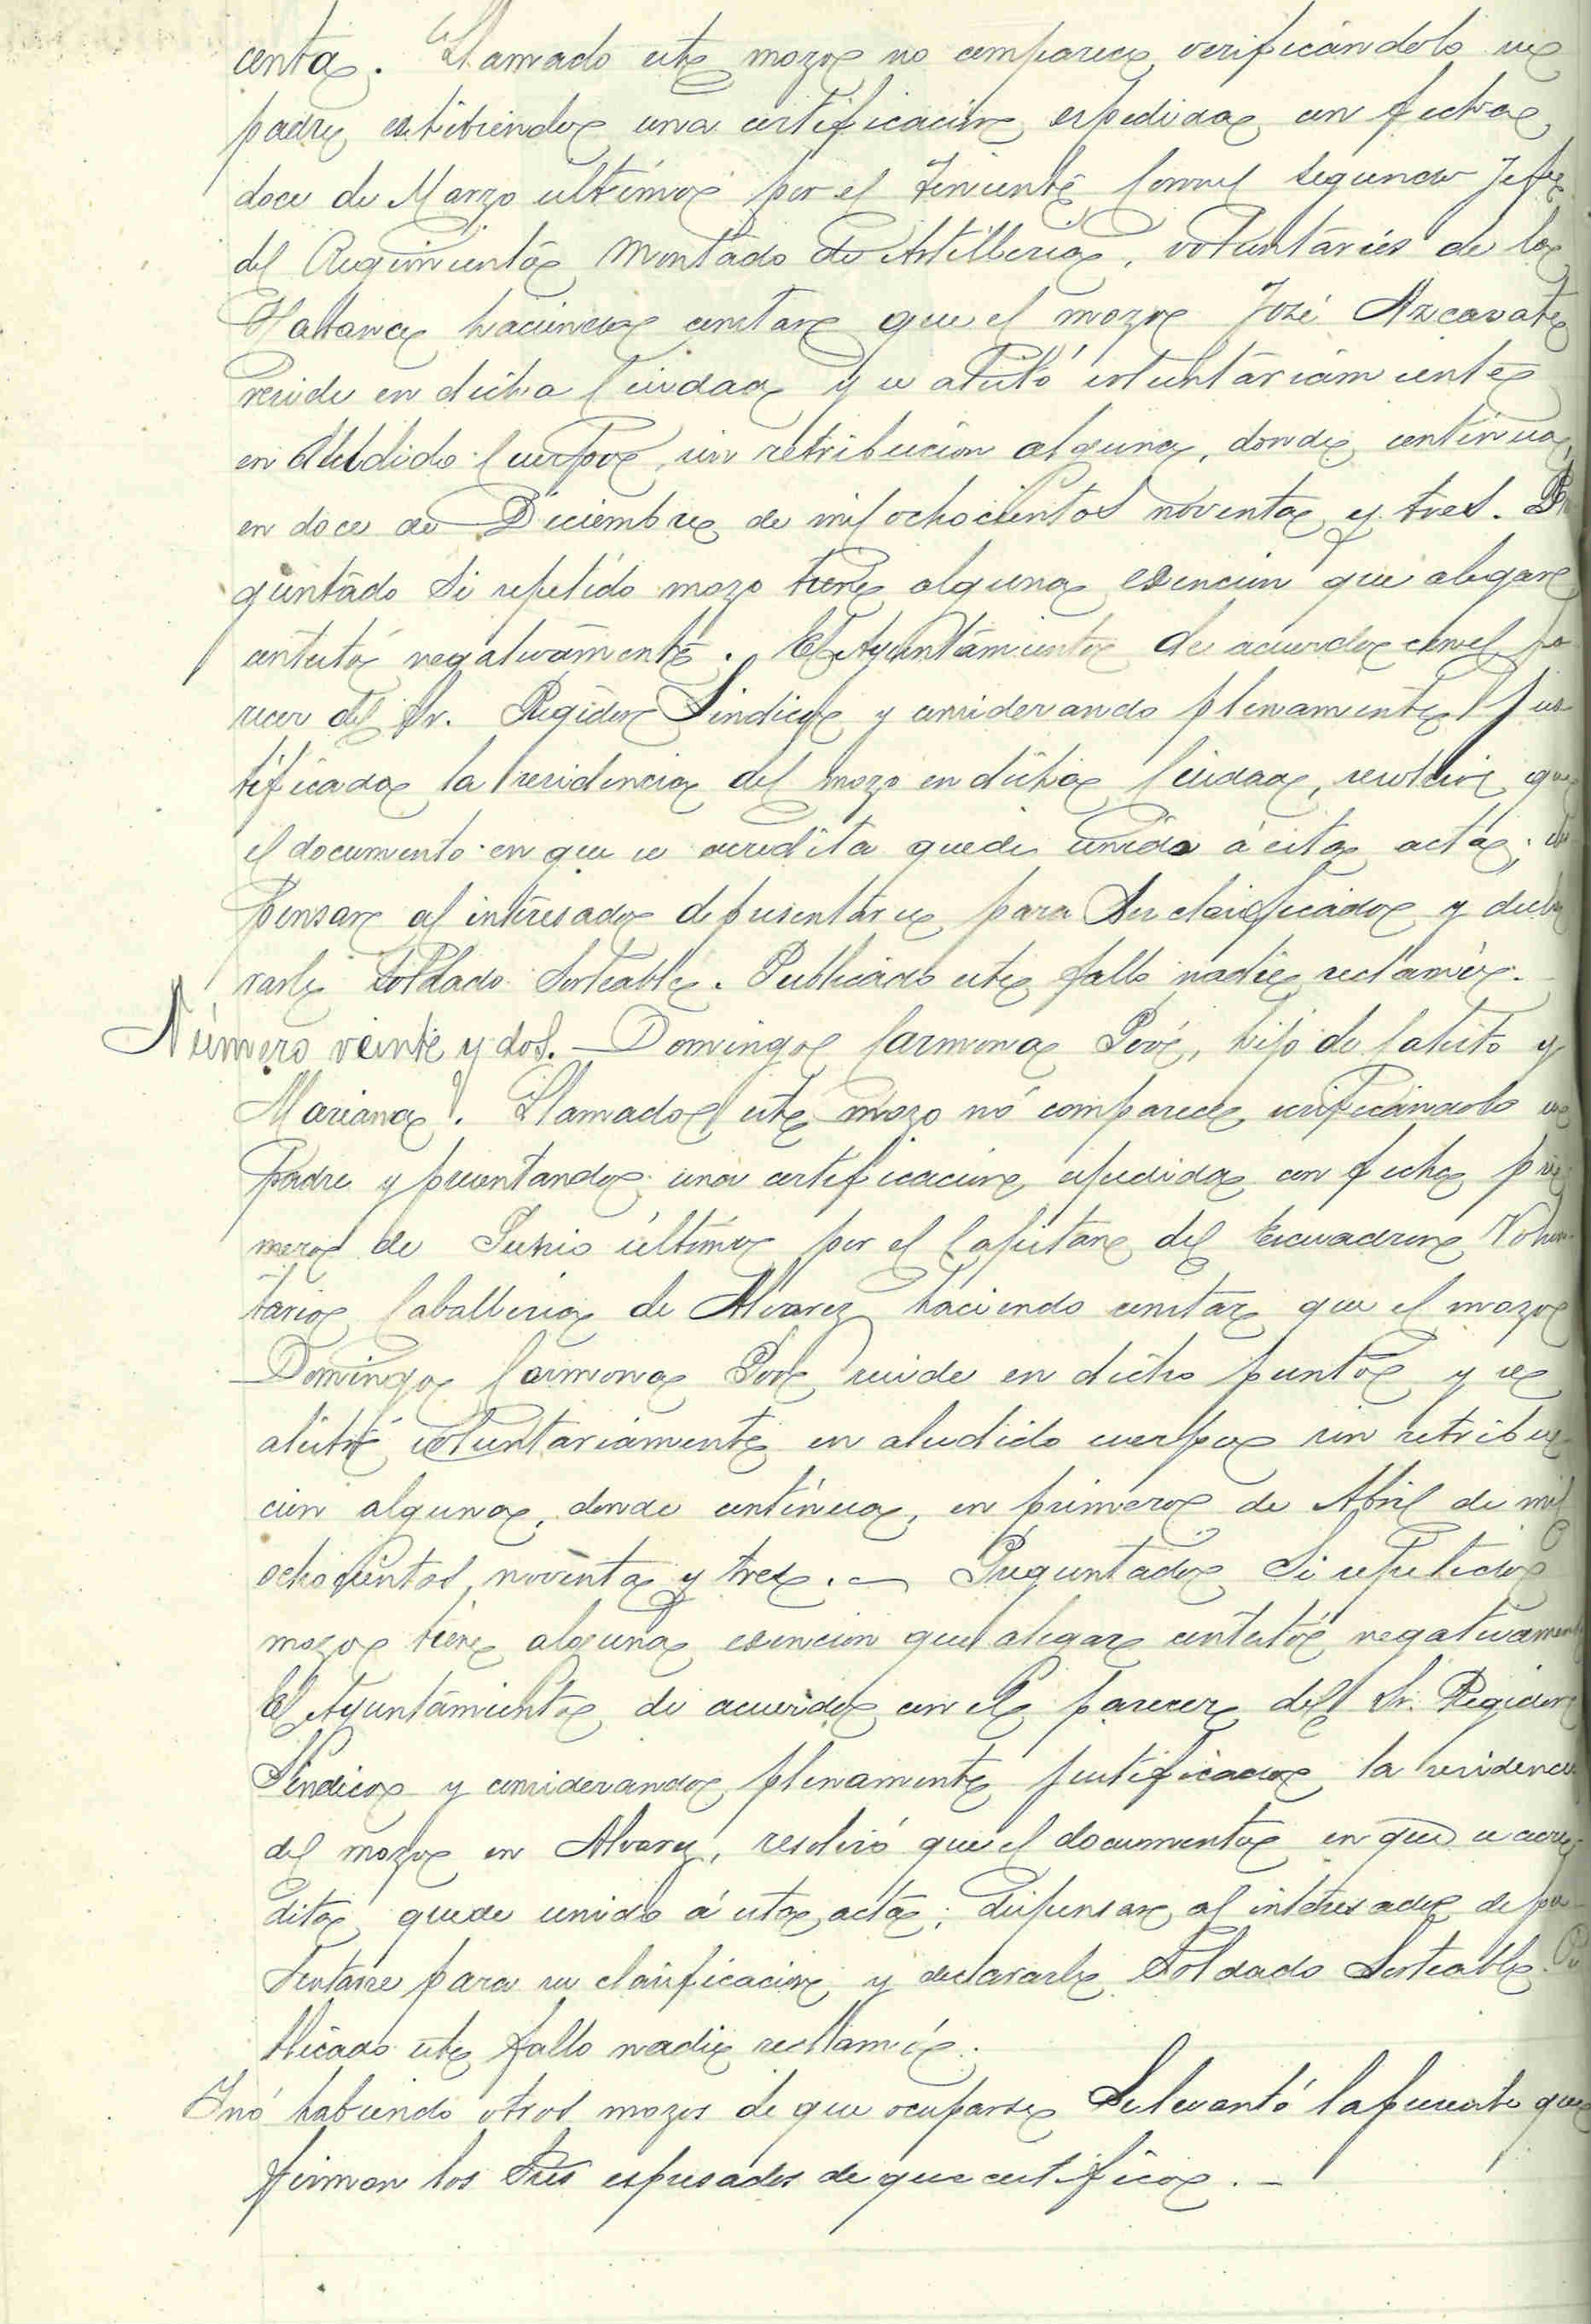 centa. Llamado este mozo no comparece verificándolo su
padre exhibiendo una certificacion espedida con fecha
doce de Marzo ultimo por el Teniente Coronel segundo Jefe
del Regimiento Montado de Artilleria, voluntarios de la
Habana haciendo constar que el mozo José Azcarate
reside en dicha Ciudad y se alistó voluntariamiente
en aludido Cuerpo, sin retribucion alguna, donde continua,
en doce de Diciembre de mil ochocientos noventa y tres. Pre
guntado si repetido mozo tiene alguna exencion que alegar
contestó negativamente. El Ayuntamiento de acuerdo con el pa
recer del Sr. Regidor Sindico y considerando plenamente jus
tificada la residencia del mozo en dicha Ciudad, resolvió que
el documento en que se acredita quede unido á esta acta; dis
pensar al interesado de presentarse para ser clasificado y decla
rarle Soldado Sorteable. Publicado este fallo nadie reclamó.
Número veinte y dos. Domingo Carmona Pové, hijo de Calisto y
Mariana. Llamado este mozo no comparece verificándolo su
Padre y presentando una certificacion espedida con fecha pri
mero de Junio último por el Capitan del Escuadron Volun
tarios Caballeria de Alvarez haciendo constar que el mozo
Domingo Carmona Pové reside en dicho punto y se
alistó voluntariamente en aludido cuerpo sin retribu
cion alguna, donde continua, en primero de Abril de mil
ochocientos noventa y tres. — Preguntado si repetido
mozo tiene alguna exencion que alegar contestó negativamente
El Ayuntamiento de acuerdo con el parecer del Sr. Regidor
Sindico y considerando plenamente justificada la residencia
del mozo en Alvarez, resolvió que el documento en que se acre
dita quede unido á esta acta; dispensar al interesado de pre
sentarse para su clasificacion y declararle Soldado Sorteable. Pu
blicado este fallo nadie reclamó.
Y no habiendo otros mozos de que ocuparse Se levantó la presente que
firman los Sres espresados de que certifico. —